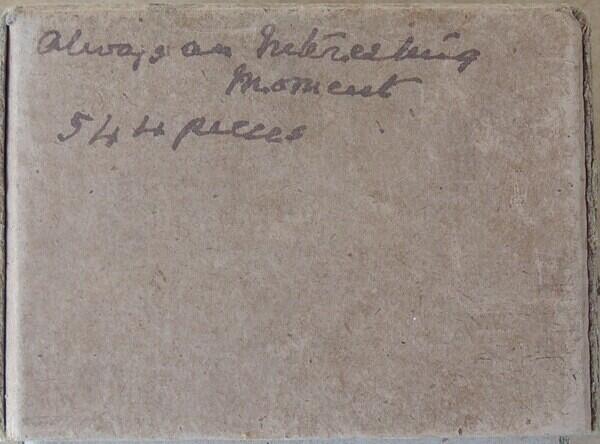 Always an Interesting
Moment
544 pieces